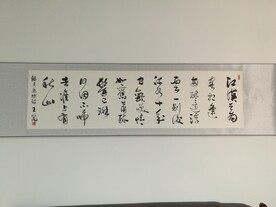 江漢曾為
客相逢每
醉還浮
雲一別後
流水十年
間歡笑情
如舊蕭疏
鬢已斑
何因不歸
去淮上有
秋山